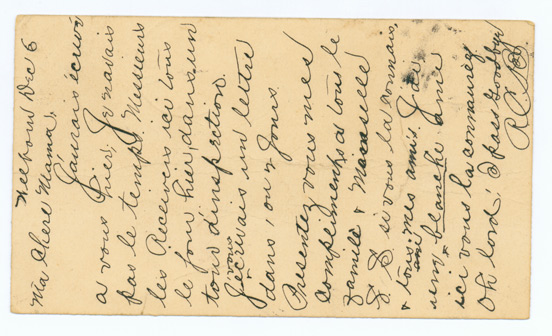 Welford Dec 6
Ma Chere Mama.
J'aurais écrivé
a vous hier, Je navais
pas le temps. Messieurs
les Receivers ici tous
le jour hier dans un
tour d'inspection.
J'ecrivais vous un lettre
dans, ou 4 jours.
Presentez vous mes
complements a tous le
famille & Macaselle
L. B. si vous la connais,
& tous mes amis. J'ai
une blanche amie
ici vous la connaissez
Oh lord! I pass Goodbye
R.C.